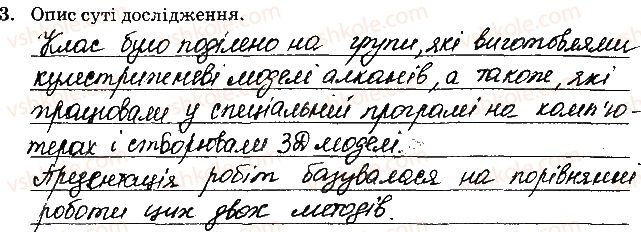 3. Опис суті дослідження.
Клас було поділено на групи, які виготовляли
кулестрижневі моделі алканів, а також, які
працювали у спеціальній програмі на комп'ю-
терах і створювали 3D моделі.
Презентація робіт базувалася на порівнянні
роботи цих двох методів.